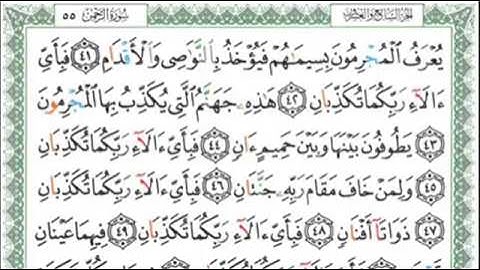 الجزء السابع والعشرون ٥٥ سورة الرحمن
يُعْرَفُ الْمُجْرِمُونَ بِسِيمَٰهُمْ فَيُؤْخَذُ بِالنَّوَٰصِى وَالْأَقْدَامِ ﴿٤١﴾ فَبِأَىِّ
ءَالَآءِ رَبِّكُمَا تُكَذِّبَانِ ﴿٤٢﴾ هَٰذِهِۦ جَهَنَّمُ الَّتِى يُكَذِّبُ بِهَا الْمُجْرِمُونَ
﴿٤٣﴾ يَطُوفُونَ بَيْنَهَا وَبَيْنَ حَمِيمٍ ءَانٍ ﴿٤٤﴾ فَبِأَىِّ ءَالَآءِ رَبِّكُمَا تُكَذِّبَانِ
﴿٤٥﴾ وَلِمَنْ خَافَ مَقَامَ رَبِّهِۦ جَنَّتَانِ ﴿٤٦﴾ فَبِأَىِّ ءَالَآءِ رَبِّكُمَا تُكَذِّبَانِ
﴿٤٧﴾ ذَوَاتَآ أَفْنَانٍ ﴿٤٨﴾ فَبِأَىِّ ءَالَآءِ رَبِّكُمَا تُكَذِّبَانِ ﴿٤٩﴾ فِيهِمَا عَيْنَانِ